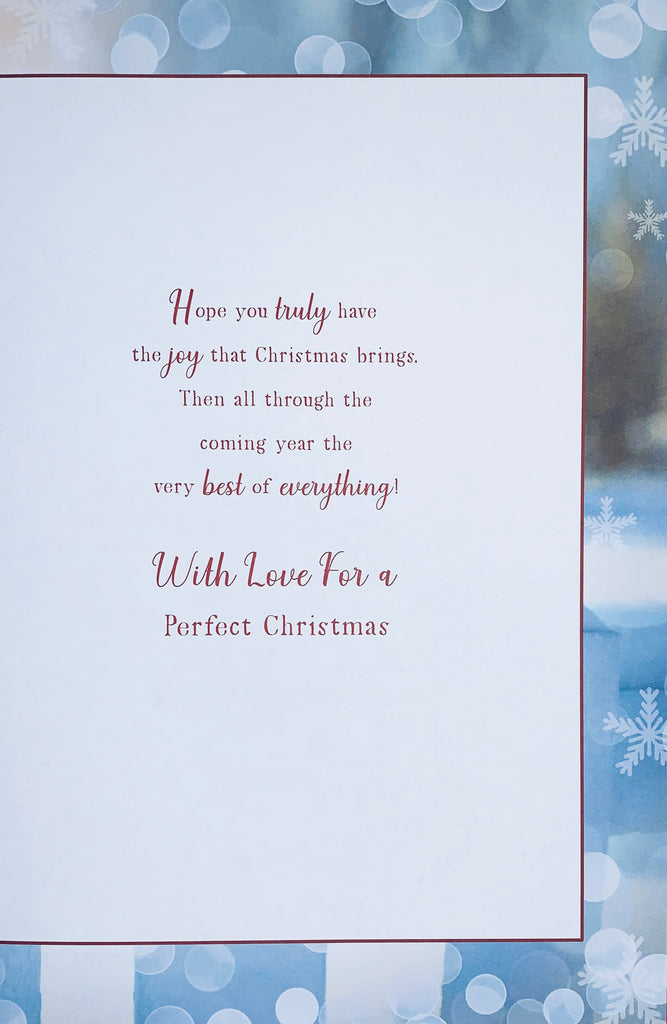 Hope you truly have
the joy that Christmas brings.
Then all through the
coming year the
very best of everything!
With Love For a
Perfect Christmas